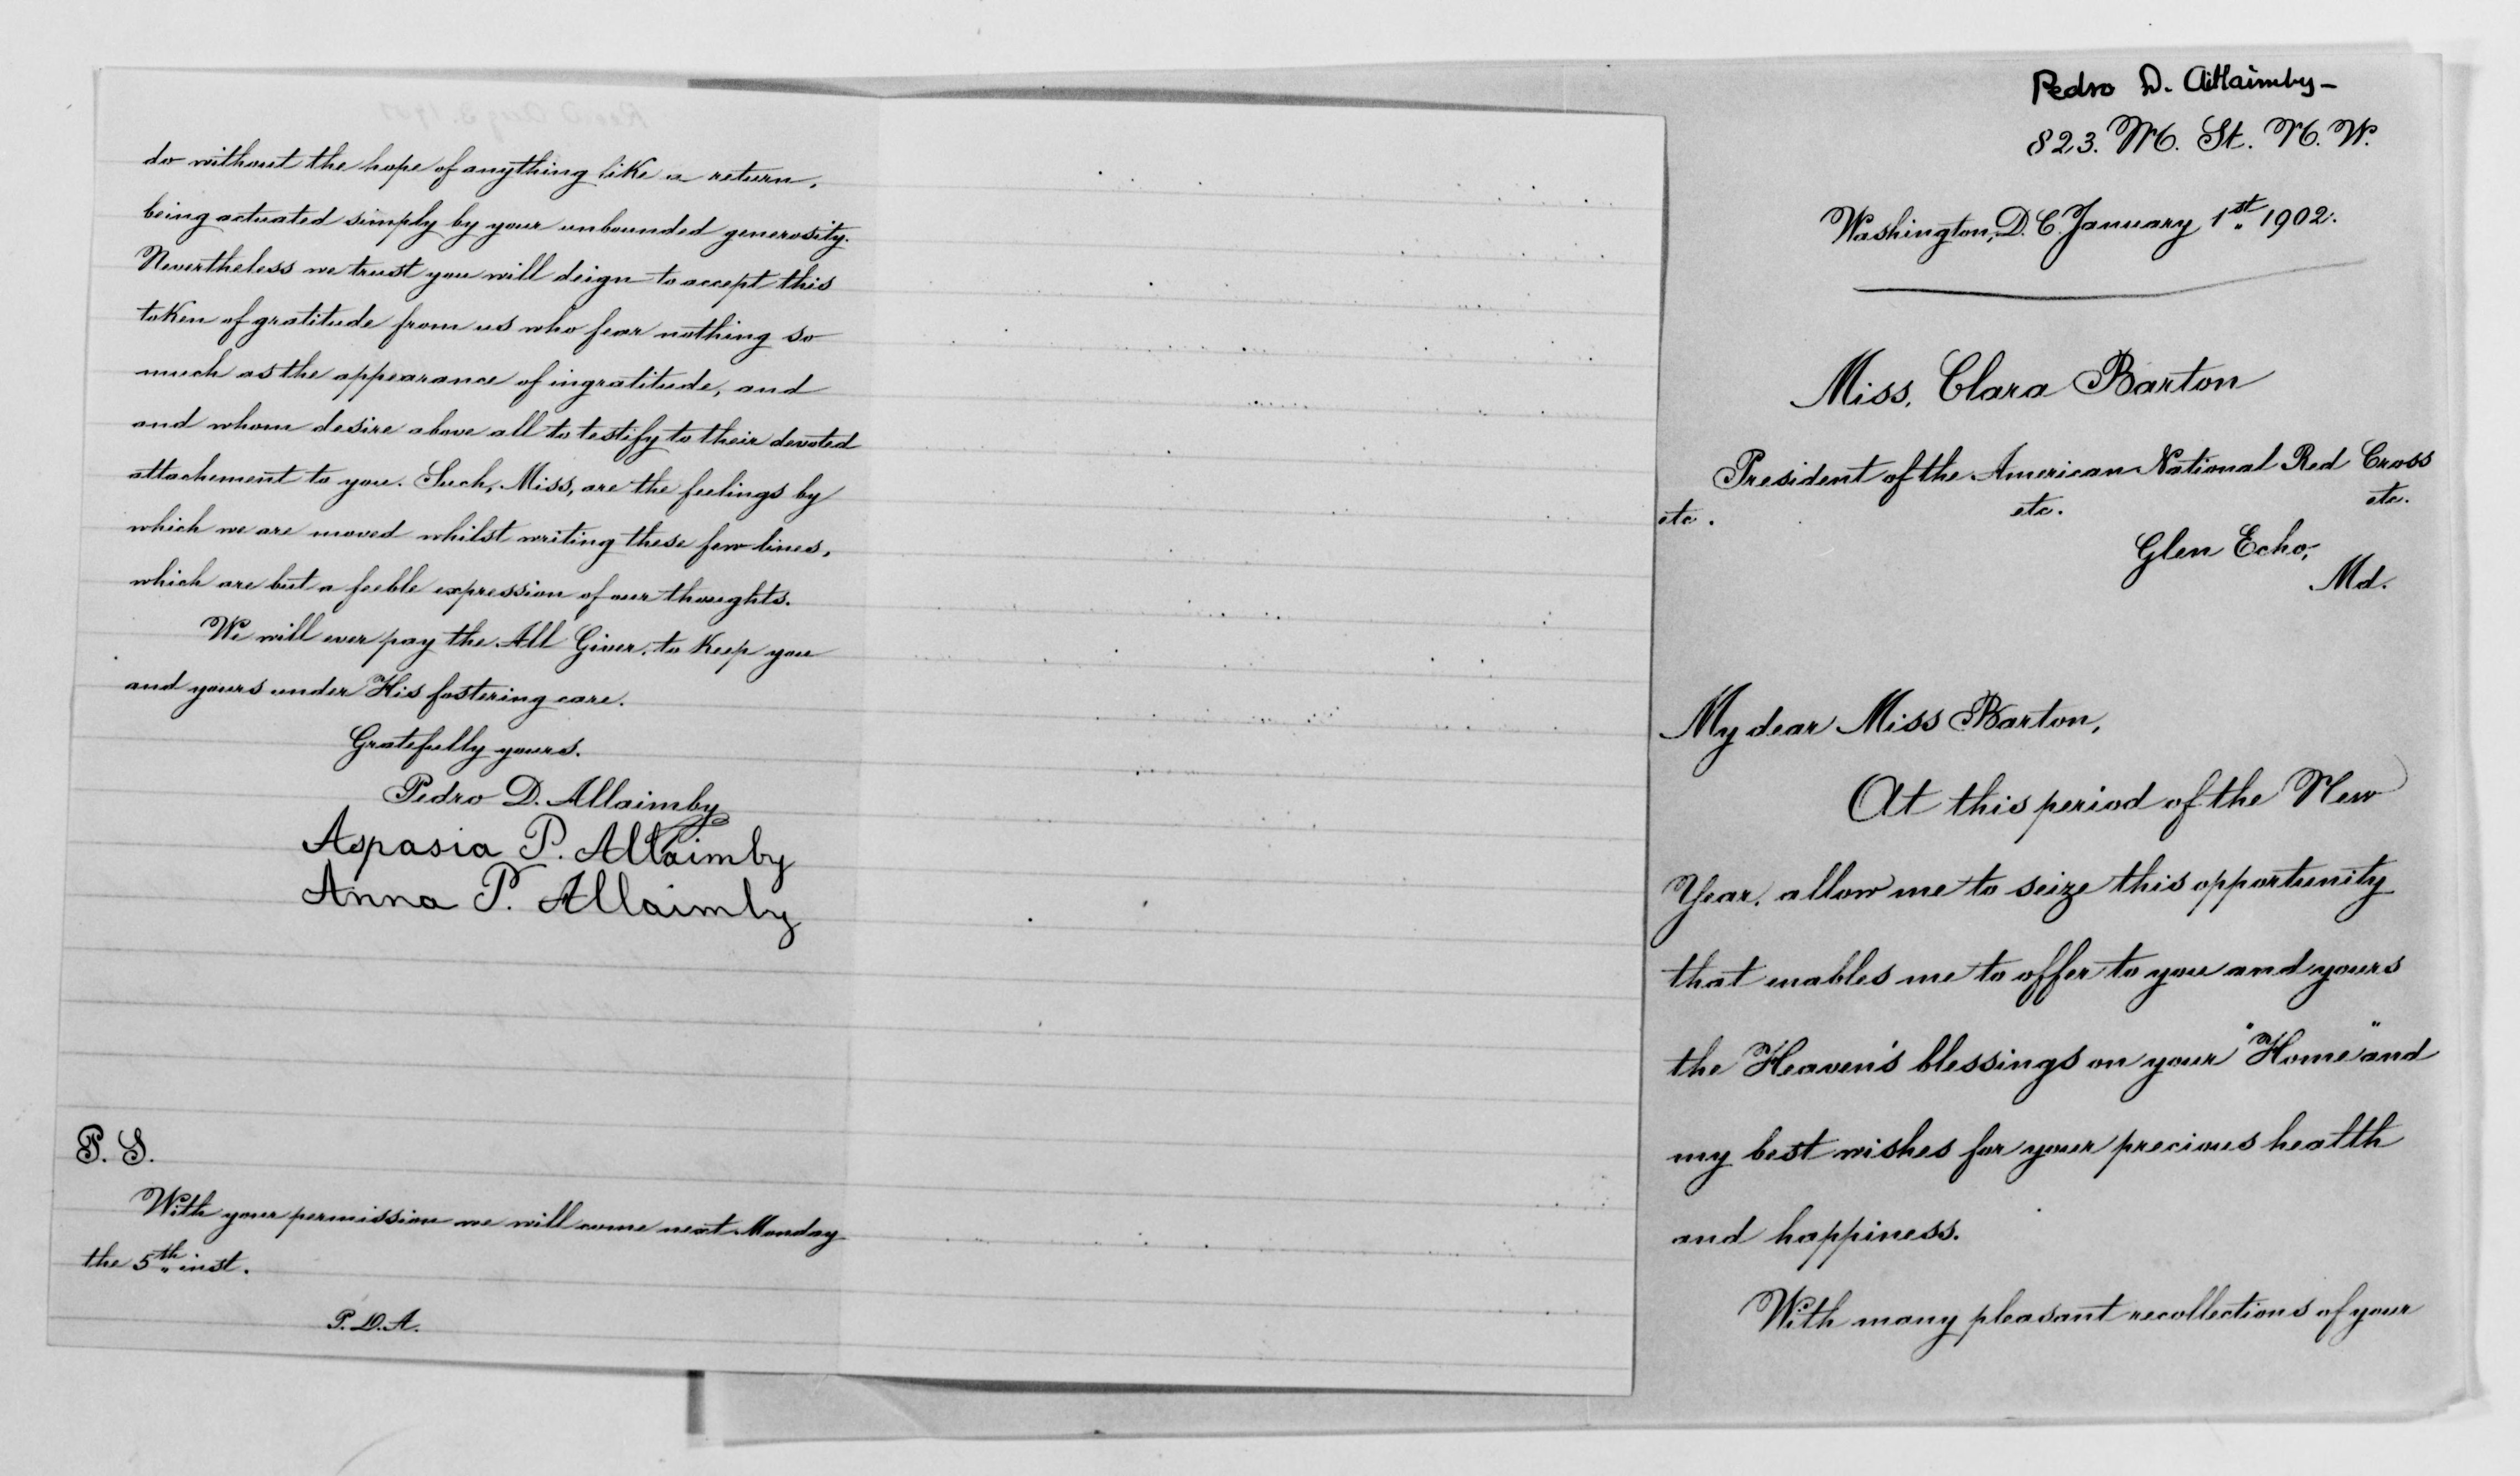 do without the hope of anything like a return,
being actuated simply by your unbounded generosity.
Nevertheless we trust you will deign to accept this
token of gratitude from us who fear nothing so
much as the appearance of ingratitude, and
and whom desire above all to testify to their devoted
attachement to you. Such, Miss, are the feelings by
which we are moved whilst writing these few lines,
which are but a feeble expression of our thoughts.
We will ever pay the All Giver, to keep you
and yours under His fostering care.
Gratefully yours.
Pedro D. Allaimby
Aspasia P. Allaimby
Anna P. Allaimby
P. S.
With your permission we will come next Monday
the 5th inst.
P. D. A.
Pedro D. Allaimby-
823. M. St. N. W.
Washington, D. C. January 1st 1902.
Miss. Clara Barton
President of the American National Red Cross
etc. etc. etc.
Glen Echo,
Md.
My dear Miss Barton,
At this period of the New
Year, allow me to seize this opportunity
that enables me to offer to you and yours
the Heaven's blessings on your "Home" and
my best wishes for your precious health
and happiness.
With many pleasant recollections of your